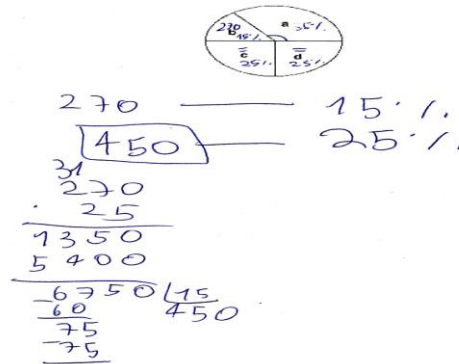 270 a 35%
b 15%
c d
25% 25%
270 — 15%
450 — 25%
31
270
. 25
1350
5400
6750 | 15
-60 450
75
-75